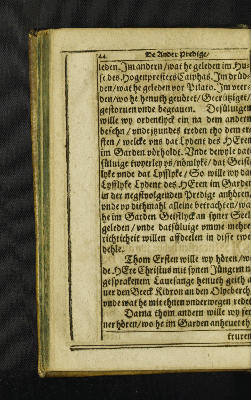 44. De Ander Predige/
leden. Jm andern/ wat he geleden im Hu-
se des Hogenpresters Caiphas. Jm drüd-
den/ wat he geleden vor Pilato. Jm veer-
den/ wo he henuth geuöret/ Gecrütziget/
gestoruen vnde begrauen. Desüluigen
wille wy ordentlyck ein na dem andern
besehn/ vnde ytzundes treden tho dem er-
sten/ welcke vns dat Lydent des HEren
im Garden vörholdt. Vnde dewyle dat
süluige twyerley ys/ nömlyk/ dat Geist-
lyke vnde dat Lyfflyke/ So wille wy dat
Lyfflyke Lydent des HEren im Garden
in der negstvolgenden Predige anhören/
vnde vp dithmahl alleine betrachten/ wat
he im Garden Geistlyck an syner Seel
geleden/ vnde datsüluige vmme mehrer
richticheit willen affdeelen in disse twe
dehle.
Thom Ersten wille wy hören/ wo
de HEre Christus mit synen Jüngern na
gesprakenem Lauesange henuth geith a-
uer den Beeck Kidron an den Olyeberch/
vnde wat he mit ehnen vnderwegen redet.
Darna thom andern wille wy fer-
ner hören/ wo he im Garden anheuet tho